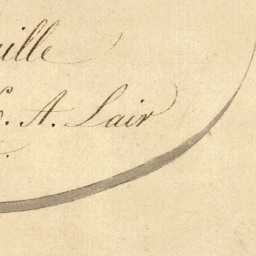 ille
. A. Lair